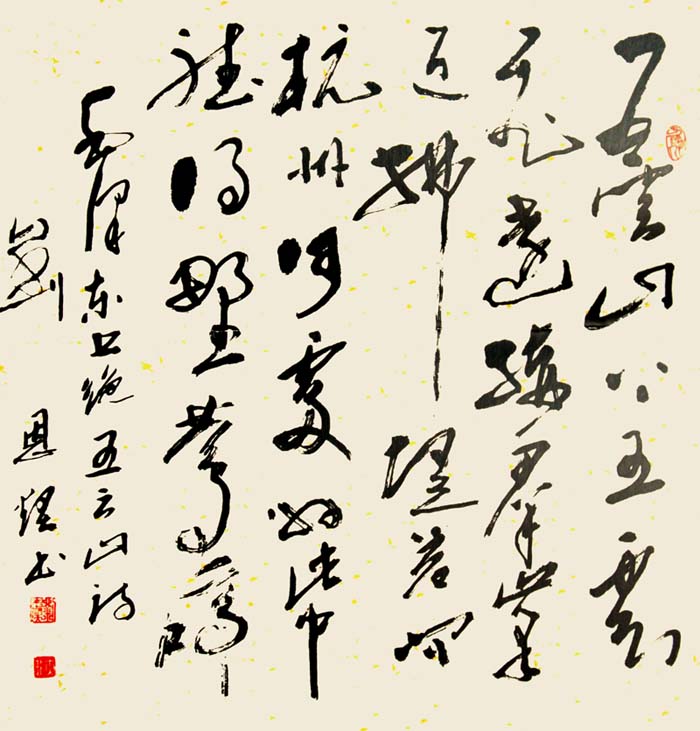 五雲山上五雲
飛遠接群峰
近拂堤若问
杭州何處好此中
聽得野莺啼
毛泽东七绝五云山诗
劉恩书